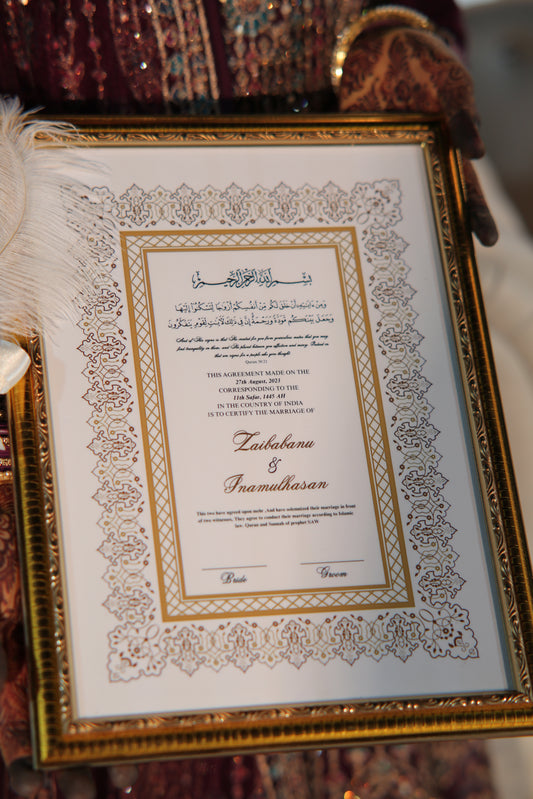 بسم الله الرحمن الرحيم
وَمِنْ آيَاتِهِ أَنْ خَلَقَ لَكُم مِّنْ أَنفُسِكُمْ أَزْوَاجًا لِّتَسْكُنُوا إِلَيْهَا
وَجَعَلَ بَيْنَكُم مَّوَدَّةً وَرَحْمَةً إِنَّ فِي ذَٰلِكَ لَآيَاتٍ لِّقَوْمٍ يَتَفَكَّرُونَ
And of His signs is that He created for you from yourselves mates that you may
find tranquility in them, and He placed between you affection and mercy. Indeed in
that are signs for a people who give thought
Quran 30:21
THIS AGREEMENT MADE ON THE
27th August, 2023
CORRESPONDING TO THE
11th Safar, 1445 AH
IN THE COUNTRY OF INDIA
IS TO CERTIFY THE MARRIAGE OF
Zaibabanu
&
Inamulhasan
This two have agreed upon mehr .And have solemnized their marriage in front
of two witnesses. They agree to conduct their marriage according to Islamic
law. Quran and Sunnah of prophet SAW
Bride Groom